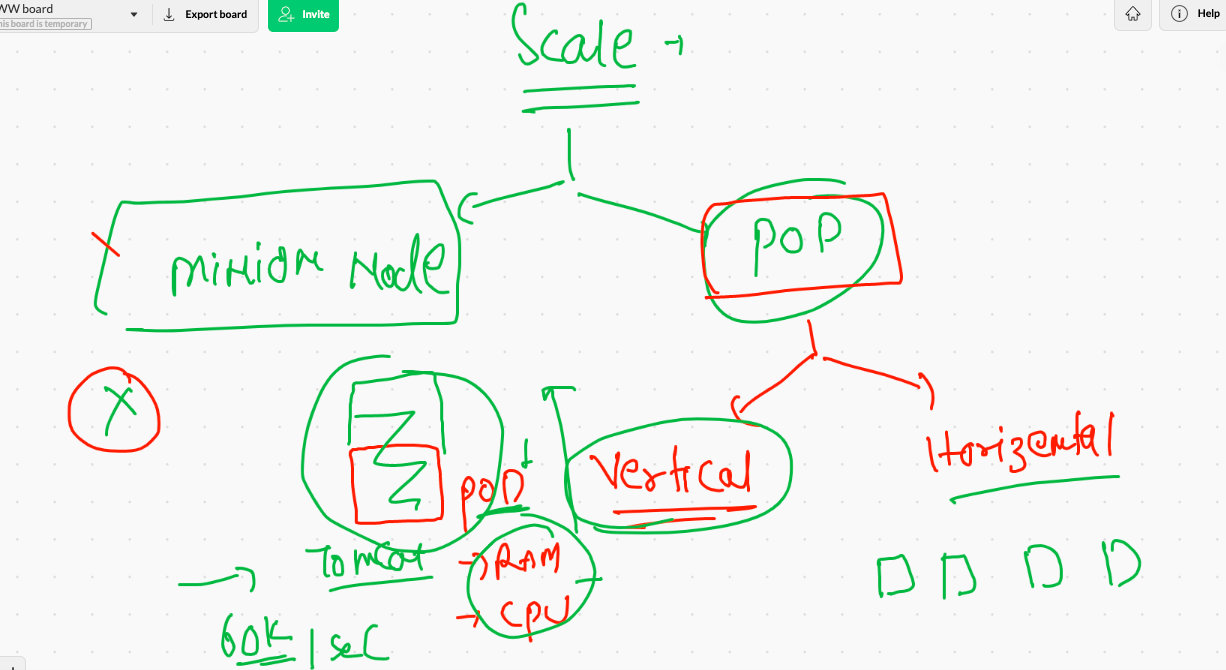 WW board
his board is temporary
Export board
Invite
Help
Scale →
Minion Node
POD
X
POD
Vertical
Horizontal
Tomcat
→ RAM
→ CPU
60K/sec